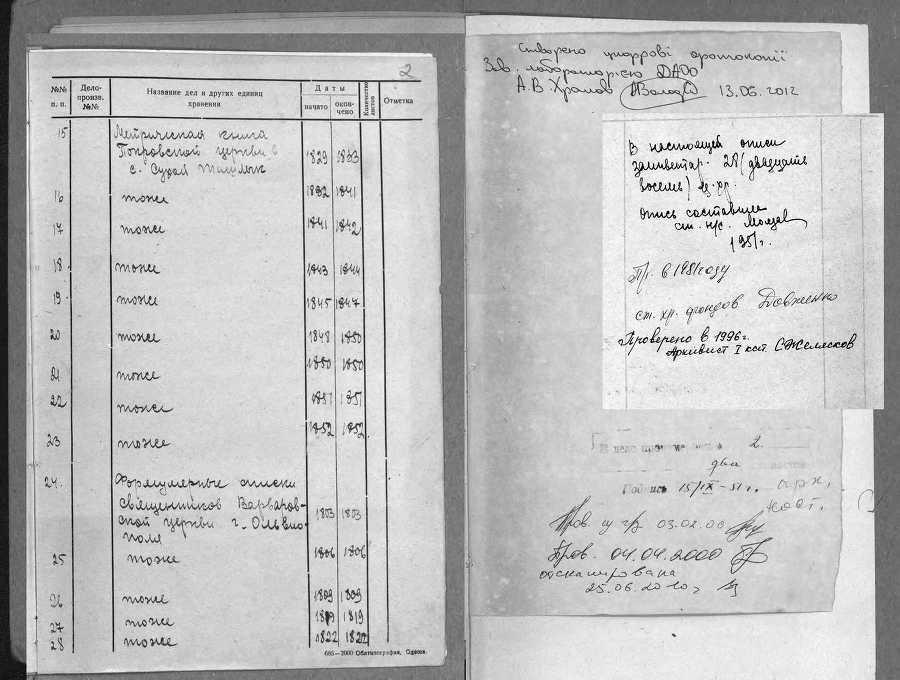 2
№№ п. п.
Дело-произв. №№
Название дел и других единиц хранения
Даты
начато
окончено
Количество листов
Отметка
15 Метрическая книга
Покровской церкви в 1829 1833
с. Сухой Ташлык
16 тоже 1832 1841
17 тоже 1841 1842
18 тоже 1843 1844
19 тоже 1845 1847
20 тоже 1848 1850
21 тоже 1850 1850
22 тоже 1851 1851
23 тоже 1852 1852
24. Формулярные списки
священников Варваров-
ской церкви г. Ольвио- 1803 1803
поля
25 тоже 1806 1806
26 тоже 1809 1809
27 тоже 1819 1819
28 тоже 1822 1822
685—2000 Облтипография, Одесса.
Створено цифрові фотокопії
Зав. лабораторією ДАОО
А.В Храмов 13.06.2012
В настоящей описи
заинвентар. 28 (двадцать
восемь) ед. хр.
Опись составил
ст. н/с.
1951 г.
Пр. в 1981 году
ст. хр. фондов Довженко
Проверено в 1996 г.
Архивист I кат. С Желясков
В деле 2.
два
Подпись 15/IX - 51 г. арх,
Пров. 03.02.00
Пров. 04.04.2000
отсканирована
25.06.2010 г